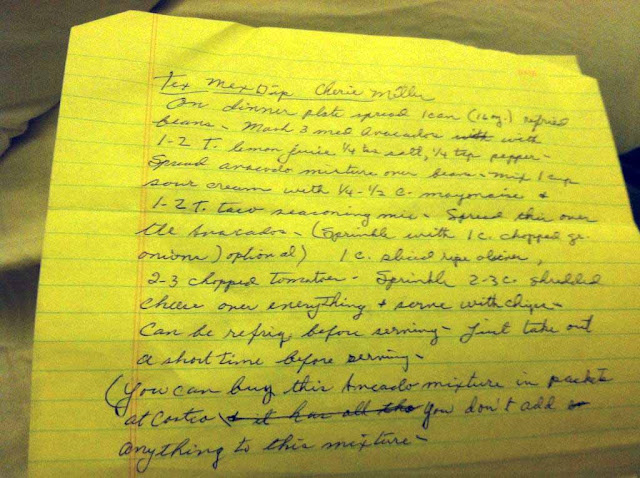 Tex Mex Dip Cherie Miller
On dinner plate spread 1 can (16 oz.) refried
beans - Mash 3 med avocados with with
1-2 T. lemon juice ¼ tsp salt, ¼ tsp pepper -
Spread avacado mixture over beans - mix 1 cup
sour cream with ¼ - ½ C. mayonaise &
1-2 T. taco seasoning mix - Spread this over
the Avacados - (Sprinkle with 1 c. chopped gr.
onions) optional) 1 c. sliced ripe olives,
2-3 chopped tomatoes - Sprinkle 2-3 c. shredded
cheese over everything + serve with chips -
Can be refrig. before serving - Just take out
a short time before serving -
(You can buy this Avacado mixture in packets
at Costco & it has all the you don't add or
anything to this mixture -